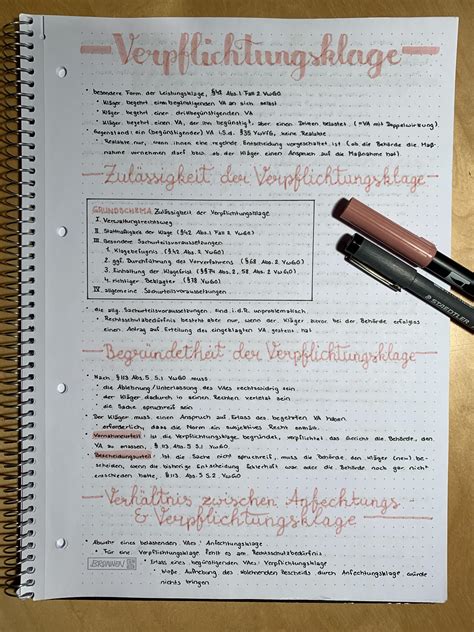 Verpflichtungsklage
• besondere Form der Leistungsklage, §42 Abs. 1 Fall 2 VwGO
• Kläger begehrt einen begünstigenden VA an sich selbst
• Kläger begehrt einen drittbegünstigenden VA
• Kläger begehrt einen VA, der ihn begünstigt, aber einen Dritten belastet (= VA mit Doppelwirkung)
• Gegenstand: ein (begünstigender) VA i.S.d. §35 VwVfG, keine Realakte
• Realakte nur, wenn ihnen eine regelnde Entscheidung vorgeschaltet ist (ob die Behörde die Maß-
nahme vornehmen darf bzw. ob der Kläger einen Anspruch auf die Maßnahme hat)
Zulässigkeit der Verpflichtungsklage
GRUNDSCHEMA Zulässigkeit der Verpflichtungsklage
I. Verwaltungsrechtsweg
II. Statthaftigkeit der Klage (§42 Abs. 1 Fall 2 VwGO)
III. Besondere Sachurteilsvoraussetzungen
1. Klagebefugnis (§42 Abs. 2 VwGO)
2. ggf. Durchführung des Vorverfahrens (§68 Abs. 2 VwGO)
3. Einhaltung der Klagefrist (§§74 Abs. 2, 58 Abs. 2 VwGO)
4. richtiger Beklagter (§78 VwGO)
IV. allgemeine Sachurteilsvoraussetzungen
• die allg. Sachurteilsvoraussetzungen sind i.d.R. unproblematisch
• Rechtsschutzbedürfnis besteht aber nur, wenn der Kläger zuvor bei der Behörde erfolglos
einen Antrag auf Erteilung des eingeklagten VA gestellt hat
Begründetheit der Verpflichtungsklage
• Nach §113 Abs. 5 S. 1 VwGO muss
• die Ablehnung/Unterlassung des VAes rechtswidrig sein
• der Kläger dadurch in seinen Rechten verletzt sein
• die Sache spruchreif sein
• Der Kläger muss einen Anspruch auf Erlass des begehrten VA haben
• erforderlich, dass die Norm ein subjektives Recht enthält
Vornahmeurteil: Ist die Verpflichtungsklage begründet, verpflichtet das Gericht die Behörde, den
VA zu erlassen, §113 Abs. 5 S. 1 VwGO
Bescheidungsurteil: Ist die Sache nicht spruchreif, muss die Behörde den Kläger (neu) be-
scheiden, wenn die bisherige Entscheidung fehlerhaft war oder die Behörde noch gar nicht
entschieden hatte, §113 Abs. 5 S. 2 VwGO
Verhältnis zwischen Anfechtungs-
& Verpflichtungsklage
• Abwehr eines belastenden VAes: Anfechtungsklage
• Für eine Verpflichtungsklage fehlt es am Rechtsschutzbedürfnis
• Erlass eines begünstigenden VAes: Verpflichtungsklage
• bloße Aufhebung des ablehnenden Bescheids durch Anfechtungsklage würde
nichts bringen
BRUNNEN
STAEDTLER